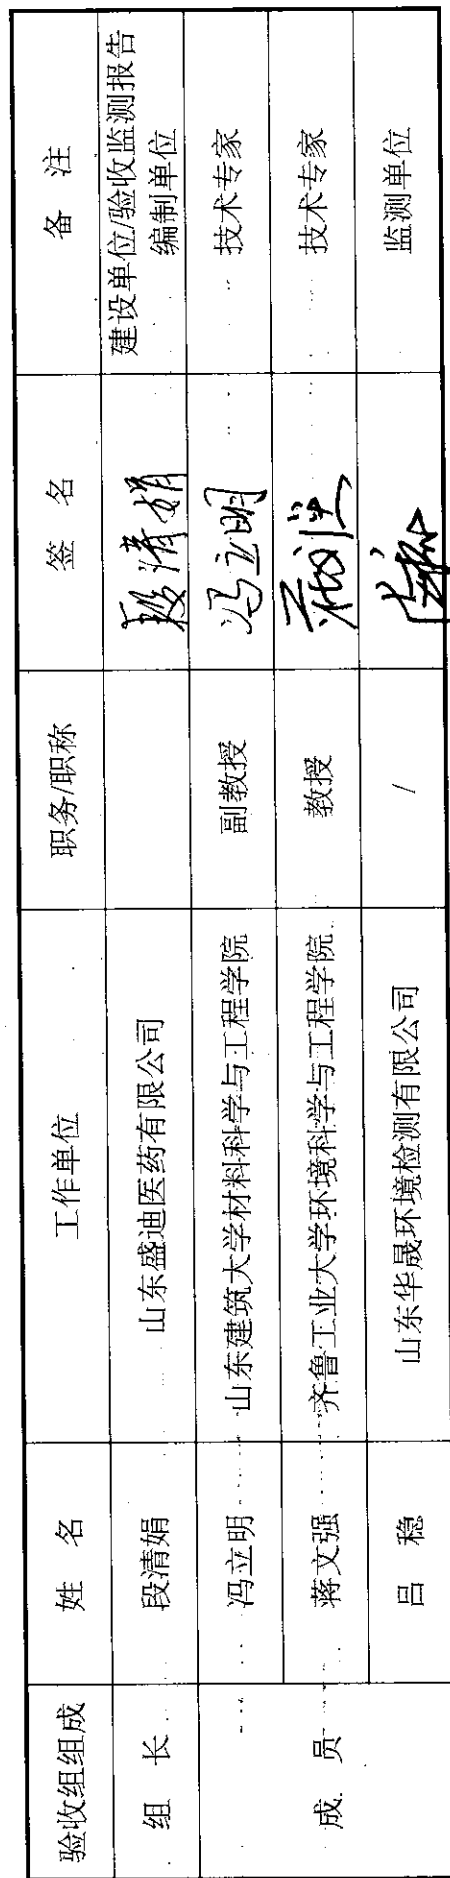 验收组组成 姓 名 工作单位 职务/职称 签 名 备 注
组 长 段清娟 山东盛迪医药有限公司 段清娟 建设单位/验收监测报告
编制单位
成 员 冯立明 山东建筑大学材料科学与工程学院 副教授 冯立明 技术专家
蒋文强 齐鲁工业大学环境科学与工程学院 教授 技术专家
吕 稳 山东华晟环境检测有限公司 / 监测单位